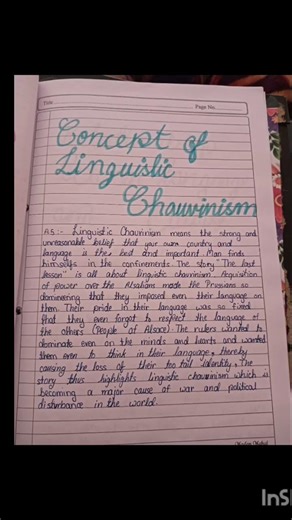 Date
Page No.
Concept of
Linguistic
Chauvinism
A5:- Linguistic Chauvinism means the strong and
unreasonable belief that your own country and
language is the best and important Man finds
himself in the confinements. The story "The last
lesson" is all about linguistic chauvinism. Acquisition
of power over the Alsatians made the Prussians so
domineering that they imposed even their language on
them. Their pride in their language was so fixed
that they even forgot to respect the language of
the others (People of Alsace). The rulers wanted to
dominate even on the minds and hearts and wanted
them even to think in their language, thereby
causing the loss of their too tall identity. The
story thus highlights linguistic chauvinism which is
becoming a major cause of war and political
disturbance in the world.
InS